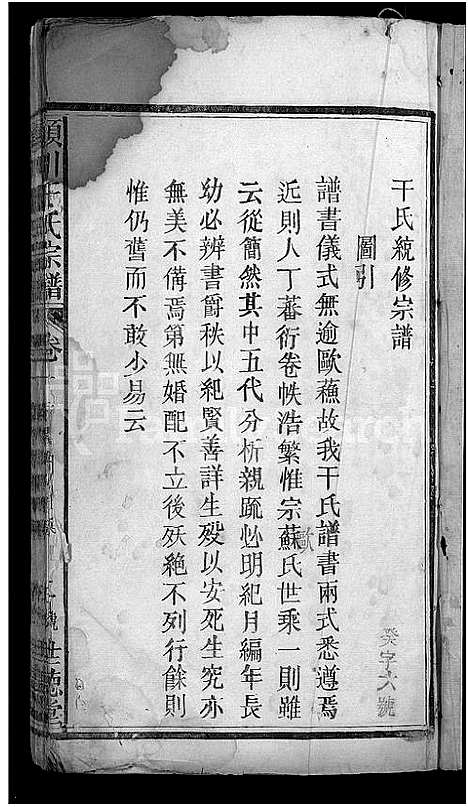 干氏統修宗譜
圖引
譜書儀式無逾歐蘓故我干氏譜書兩式悉遵焉
近則人丁蕃衍卷帙浩繁惟宗蘇氏世乘一則雖
歐
云從簡然其中五代分析親疏必明紀月編年長
幼必辨書爵秩以紀賢善詳生歿以安死生究亦
無美不備焉第無婚配不立後殀絶不列行餘則
惟仍舊而不敢少易云
癸字六號
潁川干氏宗譜
卷一
世德堂